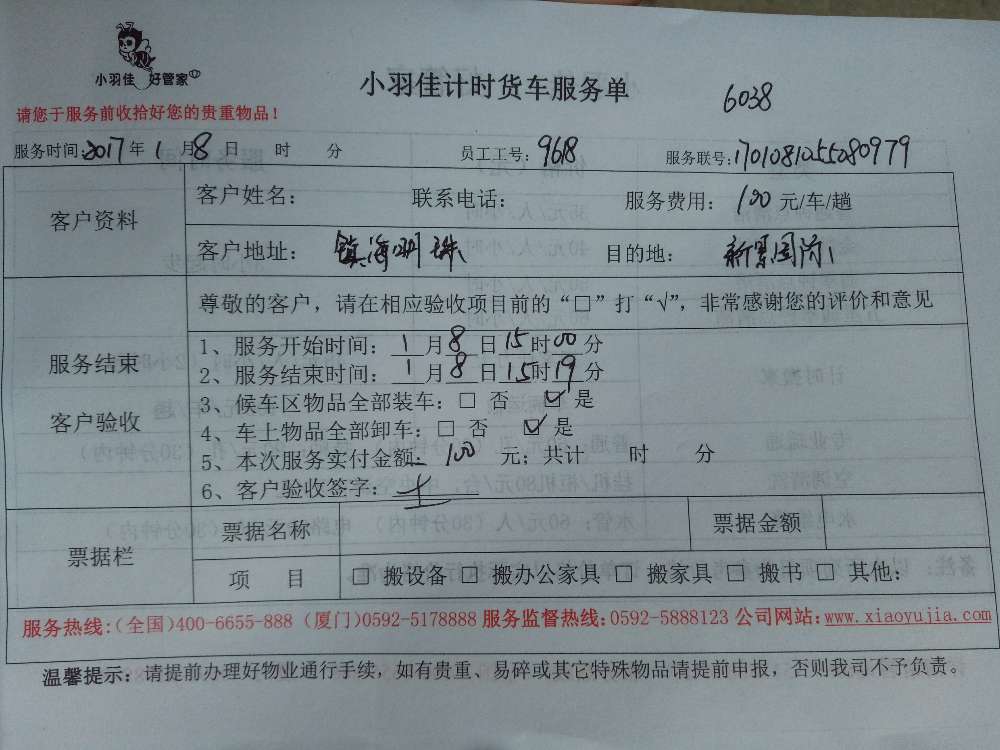 小羽佳 好管家
小羽佳计时货车服务单
6038
请您于服务前收拾好您的贵重物品！
服务时间：2017年1月8日 时 分 员工工号：9618 服务联号：170108125508 0979
客户资料
客户姓名： 联系电话： 服务费用：100元/车/趟
客户地址：镇海明珠 目的地：新景国际
尊敬的客户，请在相应验收项目前的“□”打“√”，非常感谢您的评价和意见
服务结束
客户验收
1、服务开始时间：1月8日15时00分
2、服务结束时间：1月8日15时19分
3、候车区物品全部装车：□ 否 ☑ 是
4、车上物品全部卸车：□ 否 ☑ 是
5、本次服务实付金额：100元；共计 时 分
6、客户验收签字：
票据栏
票据名称 票据金额
项 目 □ 搬设备 □ 搬办公家具 □ 搬家具 □ 搬书 □ 其他：
服务热线：（全国）400-6655-888（厦门）0592-5178888 服务监督热线：0592-5888123 公司网站：www.xiaoyujia.com
温馨提示：请提前办理好物业通行手续，如有贵重、易碎或其它特殊物品请提前申报，否则我司不予负责。